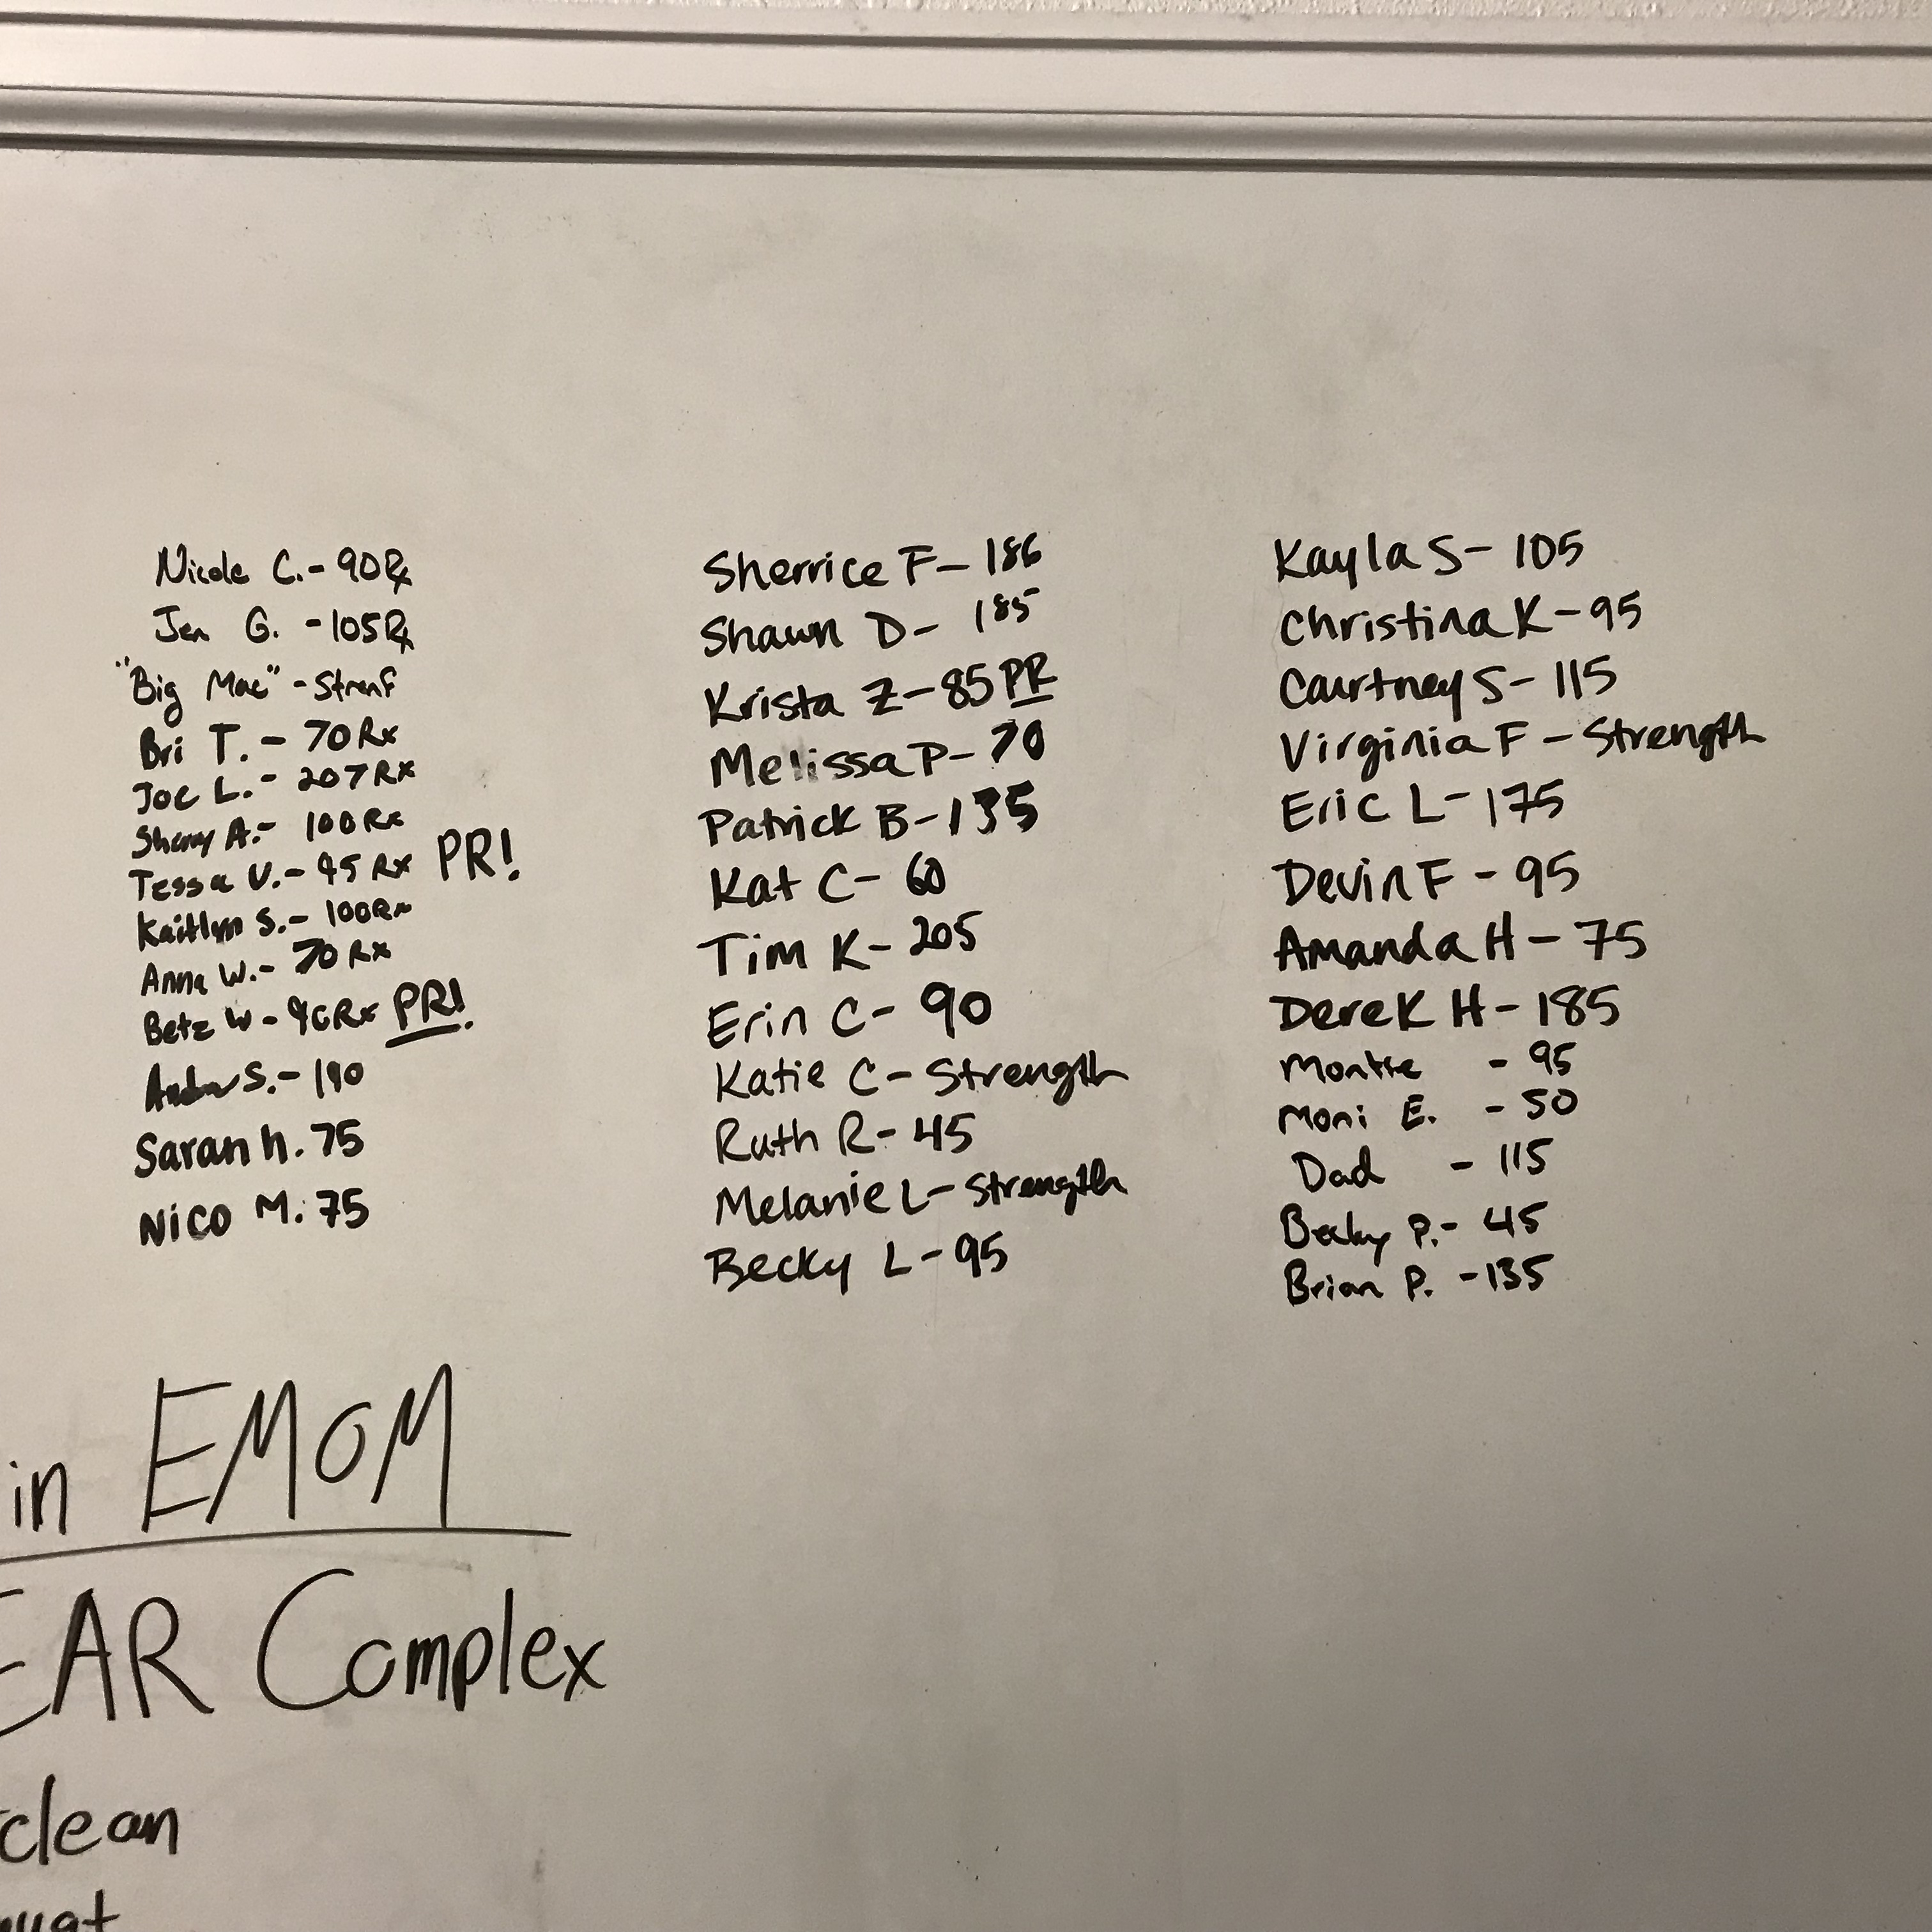 Nicole C. - 90 Rx
Jen G. - 105 Rx
"Big Mac" - Strenf
Bri T. - 70 Rx
Joe L. - 207 Rx
A. - 100 Rx
Tessa V. - 95 Rx PR!
Kaitlyn S. - 100 Rx
Anna W. - 70 Rx
Betz W - Rx PR!
S. - 190
Sarah h. 75
NICO M. 75
Sherrice F - 186
Shawn D - 185
Krista Z - 85 PR
Melissa P - 70
Patrick B - 135
Kat C - 60
Tim K - 205
Erin C - 90
Katie C - Strength
Ruth R - 45
Melanie L - Strength
Becky L - 95
Kayla S - 105
Christina K - 95
Courtney S - 115
Virginia F - Strength
Eric L - 175
Devin F - 95
Amanda H - 75
Derek H - 185
- 95
Moni E. - 50
Dad - 115
Becky P. - 45
Brian P. - 135
in EMOM
EAR Complex
clean